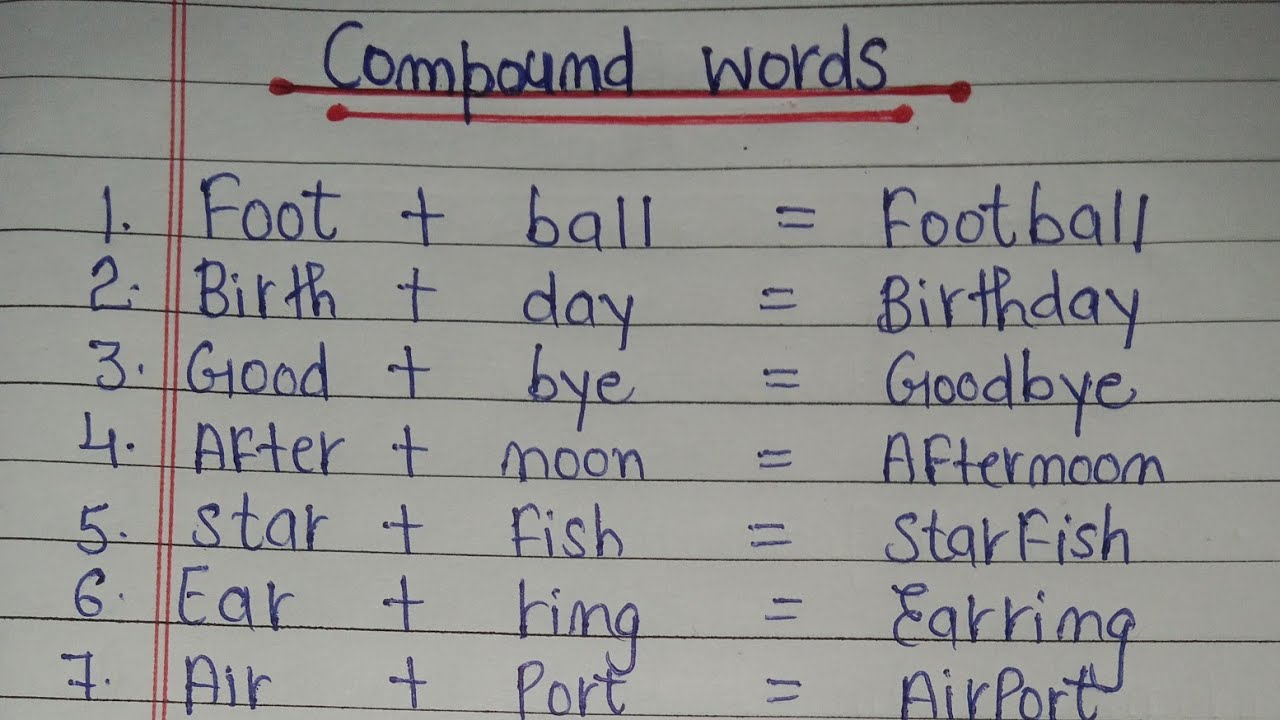 Compound words
1. Foot + ball = Football
2. Birth + day = Birthday
3. Good + bye = Goodbye
4. After + noon = Afternoon
5. star + Fish = StarFish
6. Ear + ring = Earring
7. Air + Port = AirPort